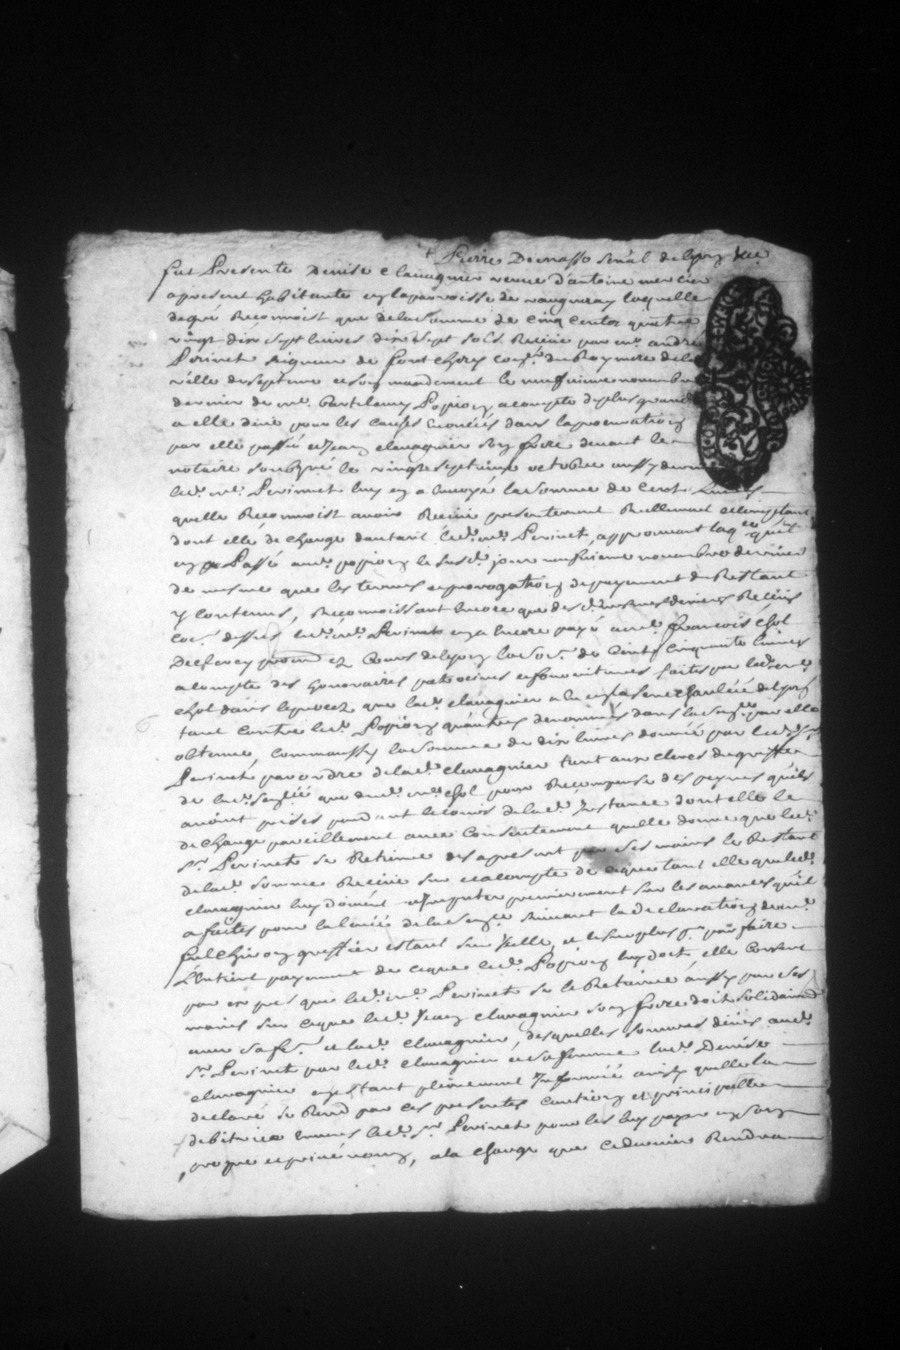 Pierre Desmasso senal de lyon
fut Presente Denise clauagnier veuue d'antoine mercier
apresent habitante en la parroisse de vaugneray laquelle
de gre Reconnoist que de la somme de cinq centz quatre
vingt dix sept liures dix sept sols Receüe par mr. andre
Perinet seigneur de font chery du Roy mere de la
ville de et son mandement le neufuieme nouembre
dernier de mr. Bartelemy Popion a compte de plus grande
a elle deüe pour les causes enoncées dans la procuration
par elle passée a Jean clauagnier son frere deuant le
notaire soubzné le vingt septieme octobre aussy dernier
led. mr. Perinnet luy en a enuoyé la somme de cent
quelle Reconnoist auoir Receüe presentement Reellement et comptant
dont elle de charge dautant led. mr. Perinet, approuuant la quil
en a Passé aud. popion le susd. jour neufuieme nouembre dernier
de mesme que les termes et prorogation de payement du Restant
y contenus, Reconnoissant encore que des d. mesmes deniers Receus
led. mr. Perinet en a encore payé a mr. françois chol
procureur ez Cours de lyon la so. de Cent Cinquante liures
a compte des honoraires patrocines et fournitures faites par led. mr.
chol dans le procez que lad. clauagnier a eu en la senechaussée de lyon
tant contre led. Popion qu'autres denommés dans la sen. par elle
obtenue, comm'aussy la somme de dix liures donnée par led. sr.
Perinet par ordre de lad. clauagnier tant aux clercs du greffe
de lad. senssée que dud. mr. chol pour Recompense des peynes quils
auoint prises pendant le cours de lad. Instance dont elle le
de charge pareillement auec Consentement quelle donne que led.
sr. Perinet se Retienne des apresent par ses mains le Restant
de lad. somme Receüe sur et a compte de ce que tant elle que led.
clauagnier luy doiuent et Imputer premierement sur les auances qu'il
a faites pour la leuée de la sen. suiuant la declaration de mr.
greffier estant sur Icelle, et le surplus par faire
l'entier payement de ce que led. Popion luy doit, elle consent
par exprés que led. mr. Perinet se le Retienne aussy par ses
mains sur ce que led. Jean clauagnier son frere doit solidairemt.
auec sa fe. et lad. clauagnier, desquelles sommes deües aud.
sr. Perinet par led. clauagnier et sa femme lad. Denise
clauagnier en estant pleinement Informée ainsy quelle la
declaré se Rend par ces presentes caution et principalle
debitrice enuers led. sr. Perinet pour les luy payer en son
propre et priué nom, a la charge que ce dernier Rendra